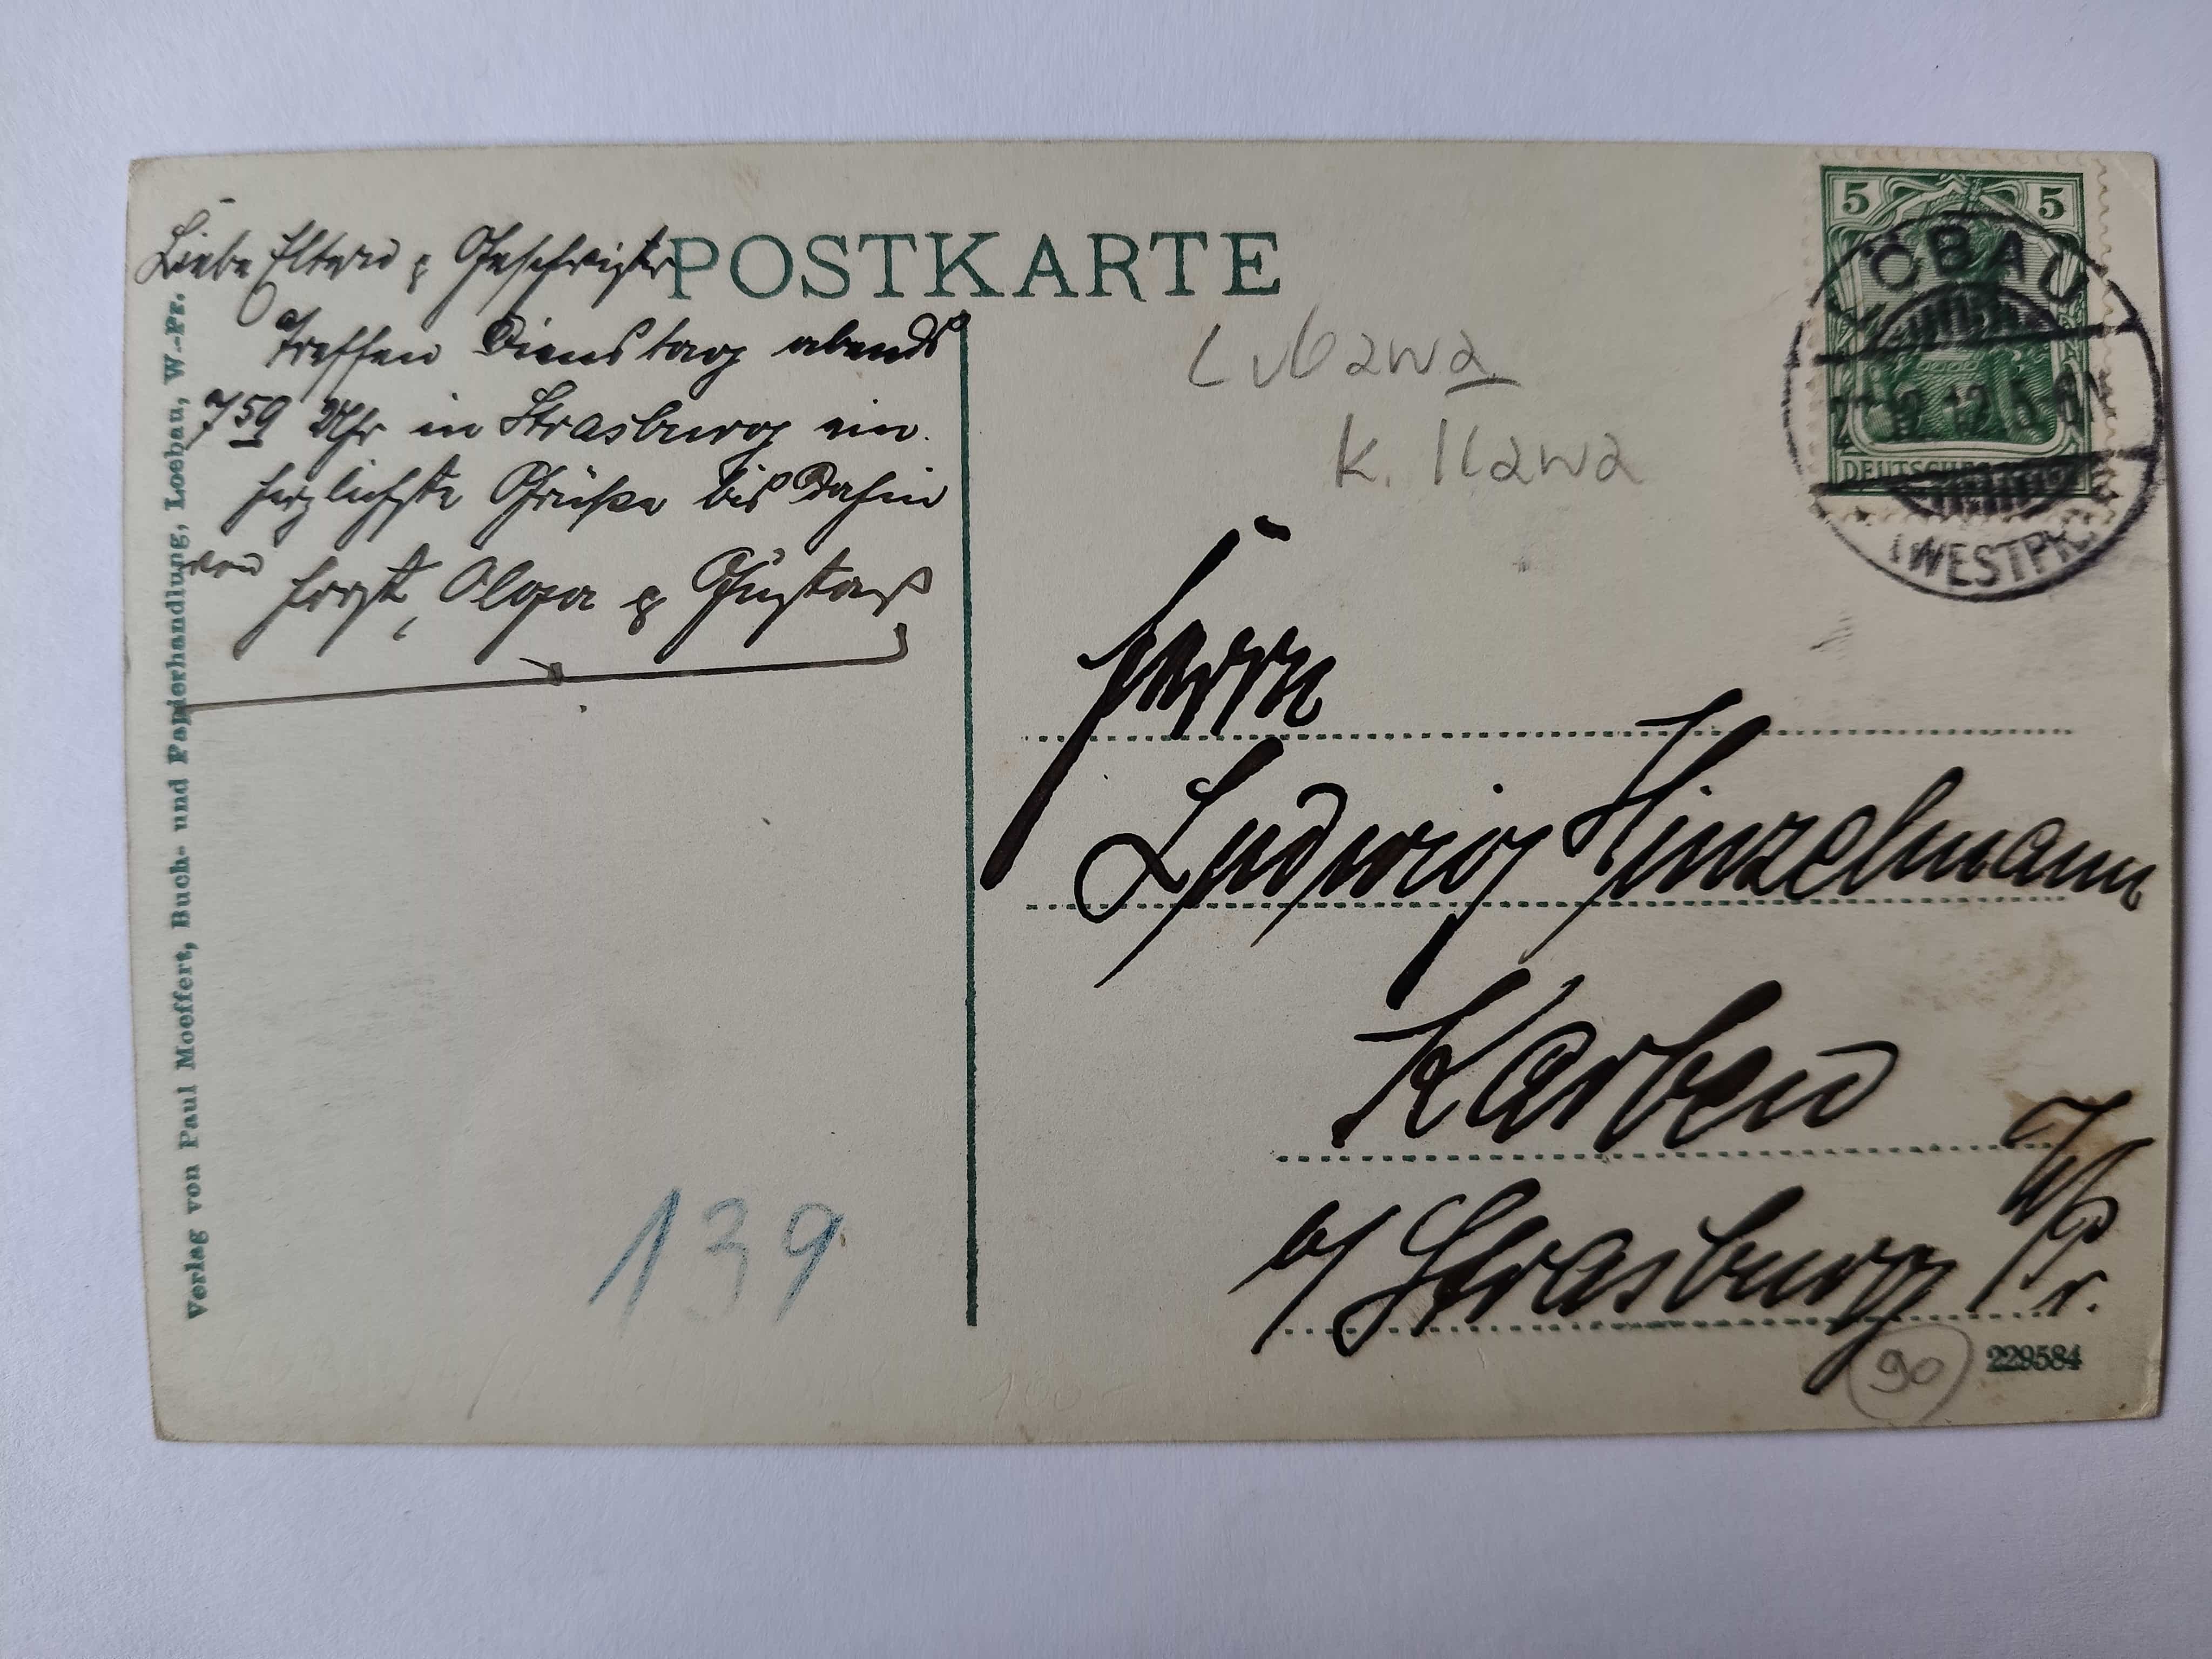 POSTKARTE
Liebe Eltern & Geschwister
Treffen Dienstag abends
7 59 Uhr in Strasburg ein.
herzlichste Grüße bis dahin
von
Horst, Olga & Gustav
Verlag von Paul Moeffert, Buch- und Papierhandlung, Loebau, W.-Pr.
139
5 5
DEUTSCHES
LÖBAU
(WESTPR.)
Lubawa
k. Iława
Herrn
Ludwig Hinzelmann
Karben
b/ Strasburg
W/Pr.
90
229584